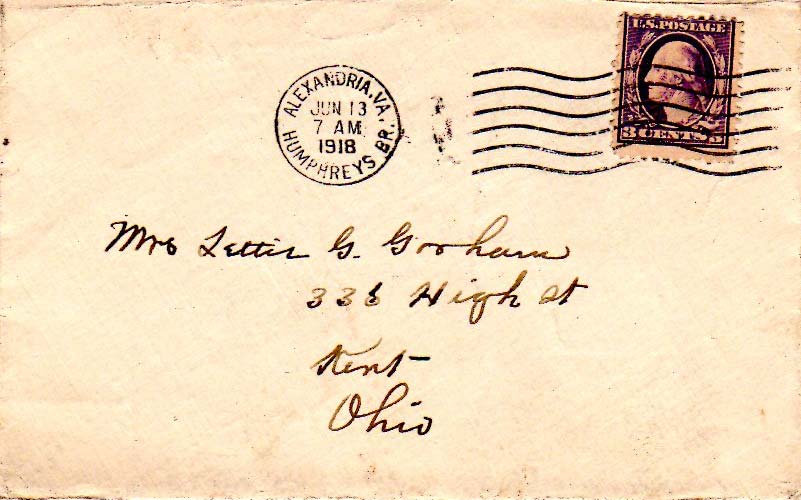 U.S. POSTAGE
3 CENTS 3
ALEXANDRIA, VA.
JUN 13
7 AM
1918
HUMPHREYS BR.
Mrs Lettie G. Gorham
336 High St
Kent
Ohio